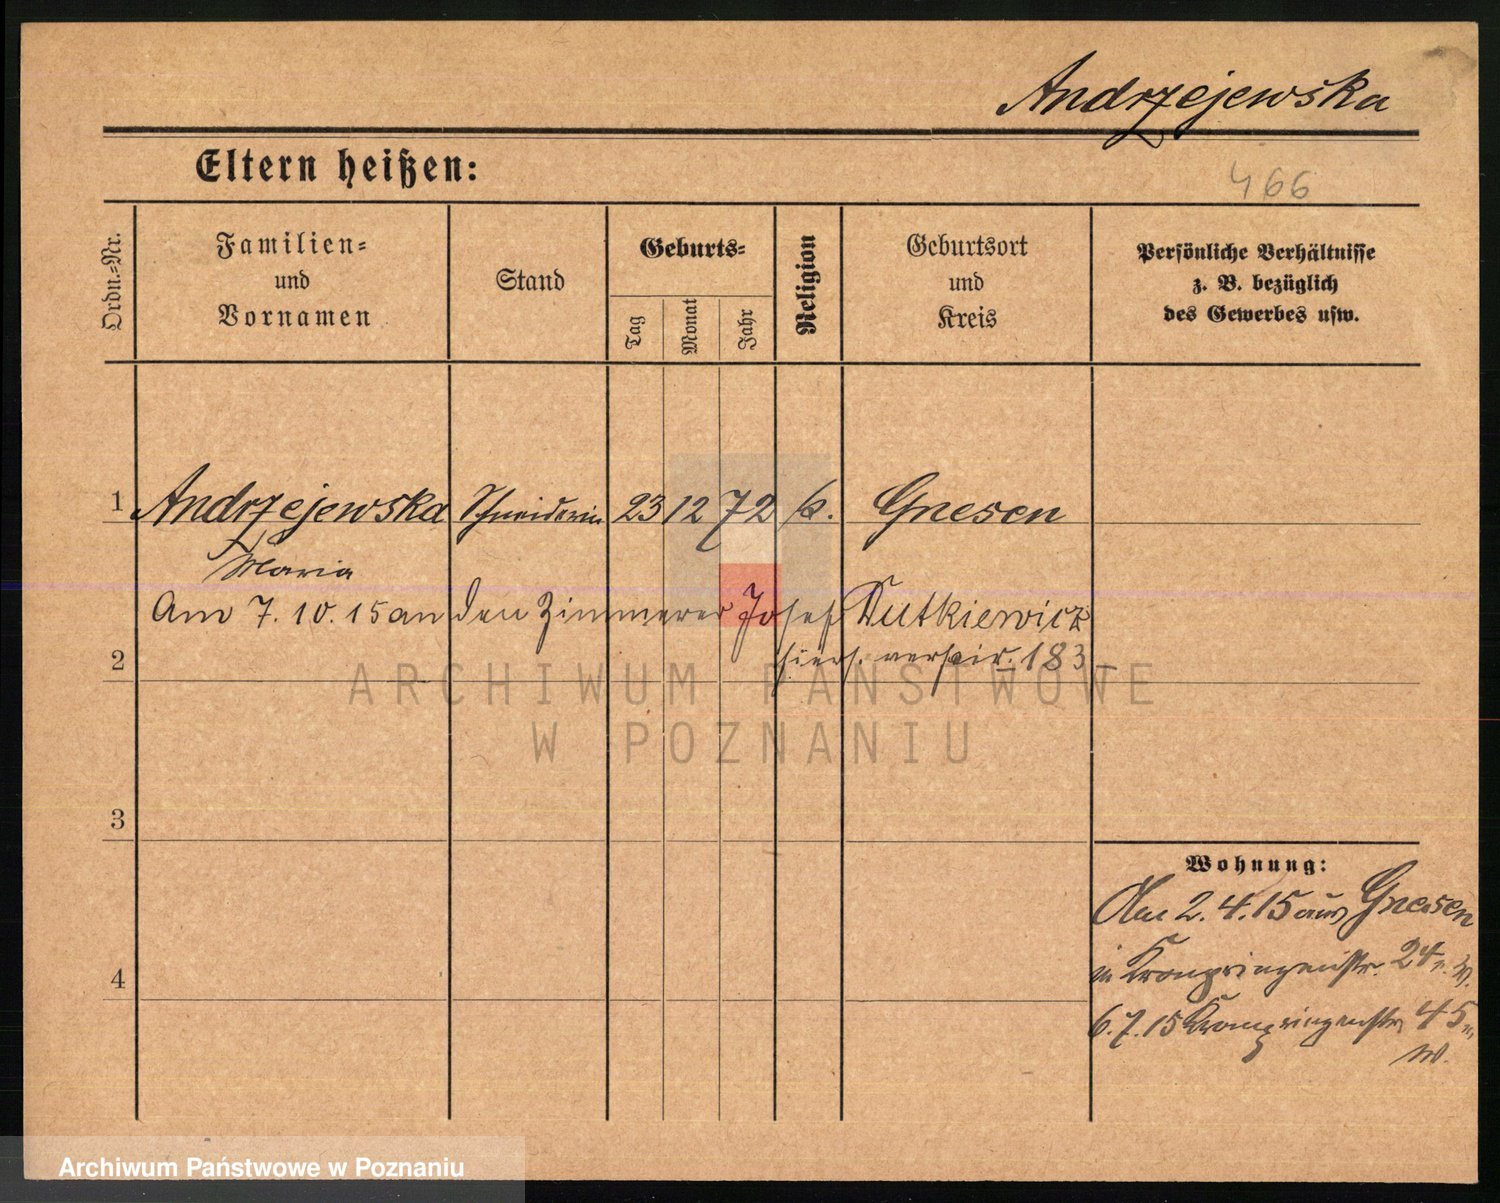 Andrzejewska
Eltern heißen:
466
Ordn.=Nr.
Familien=
und
Vornamen
Stand
Geburts=
Tag
Monat
Jahr
Religion
Geburtsort
und
Kreis
Persönliche Verhältnisse
z. B. bezüglich
des Gewerbes usw.
1 Andrzejewska Schneiderin 23 12 72 k. Gnesen
Maria
Am 7. 10. 15 an den Zimmerer Josef Dutkiewicz
2
183
ARCHIWUM PAŃSTWOWE
W POZNANIU
3
Wohnung:
Am 2. 4. 15 aus Gnesen
in Kronprinzenstr. 24
4
6. 7. 15 Kronprinzenstr. 45
W.
Archiwum Państwowe w Poznaniu